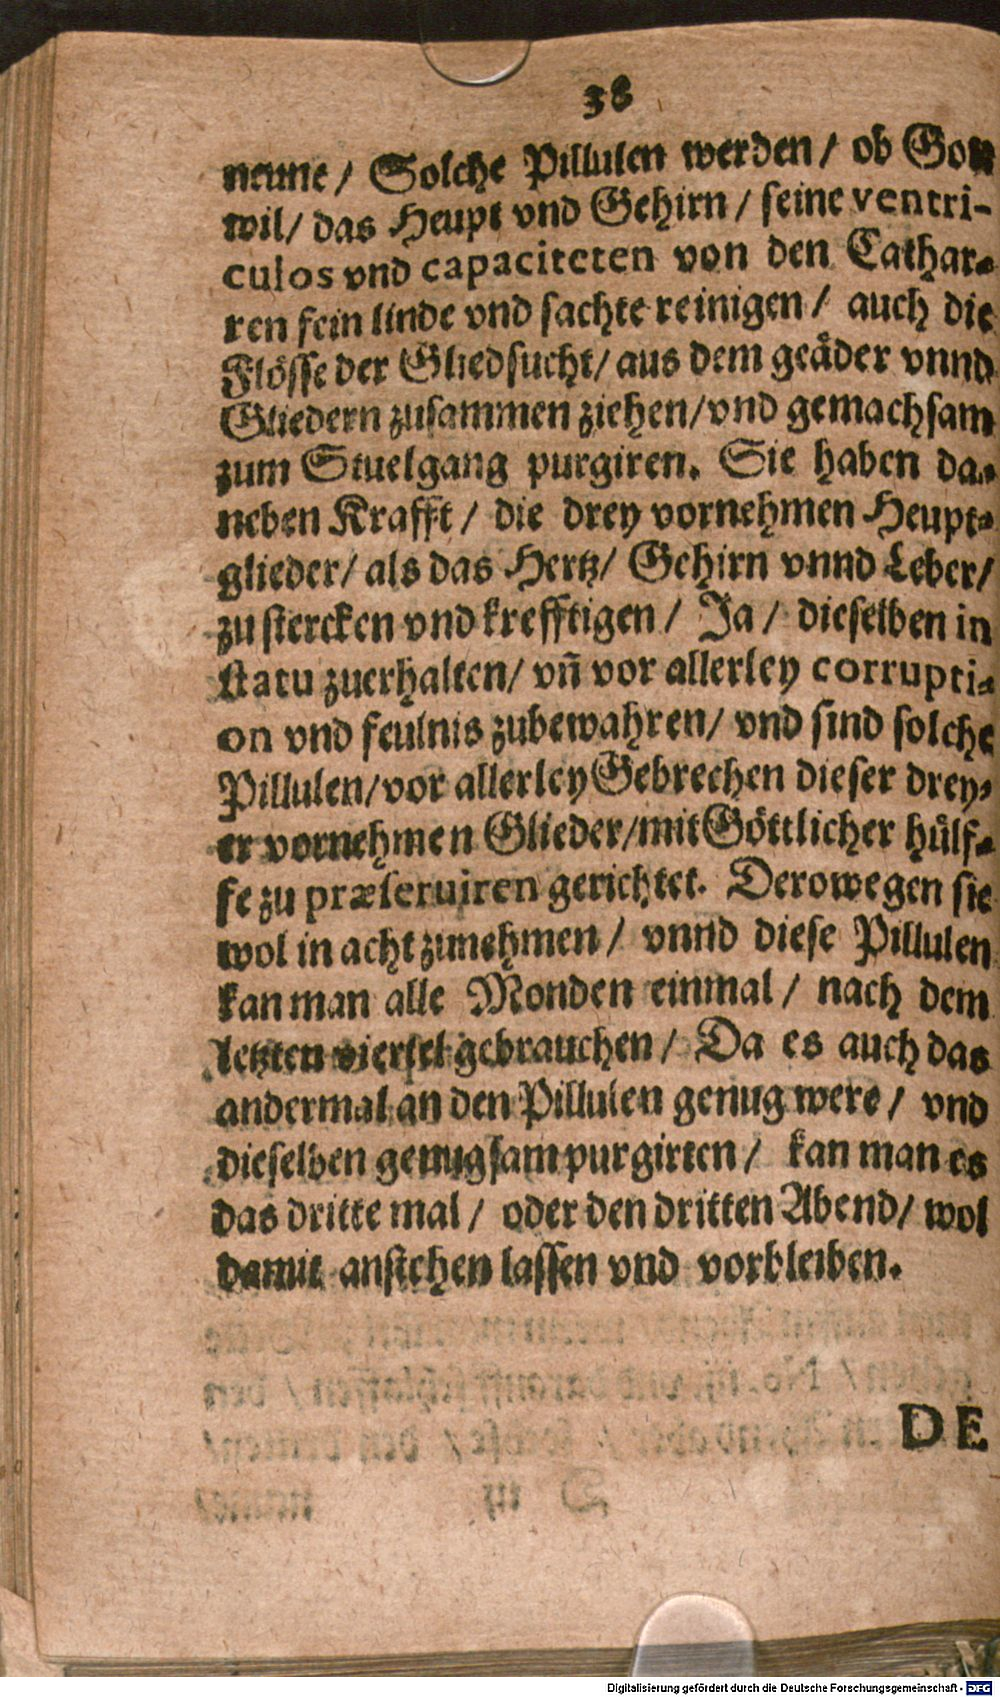 38
neune / Solche Pillulen werden / ob Gott
wil / das Heupt vnd Gehirn / seine ventri-
culos vnd capaciteten von den Cathar-
ren fein linde vnd sachte reinigen / auch die
Flösse der Gliedsucht / aus dem geäder vnnd
Gliedern zusammen ziehen / vnd gemachsam
zum Stuelgang purgiren. Sie haben da-
neben Krafft / die drey vornehmen Heupt-
glieder / als das Hertz / Gehirn vnnd Leber /
zu stercken vnd krefftigen / Ja / dieselben in
statu zuerhalten / vñ vor allerley corrupti-
on vnd feulnis zubewahren / vnd sind solche
Pillulen / vor allerley Gebrechen dieser drey-
er vornehmen Glieder / mit Göttlicher hülf-
fe zu præseruiren gerichtet. Derowegen sie
wol in acht zunehmen / vnnd diese Pillulen
kan man alle Monden einmal / nach dem
letzten viertel gebrauchen / Da es auch das
andermal an den Pillulen genug were / vnd
dieselben genugsam purgirten / kan man es
das dritte mal / oder den dritten Abend / wol
damit anstehen lassen vnd vorbleiben.
DE
Digitalisierung gefördert durch die Deutsche Forschungsgemeinschaft - DFG